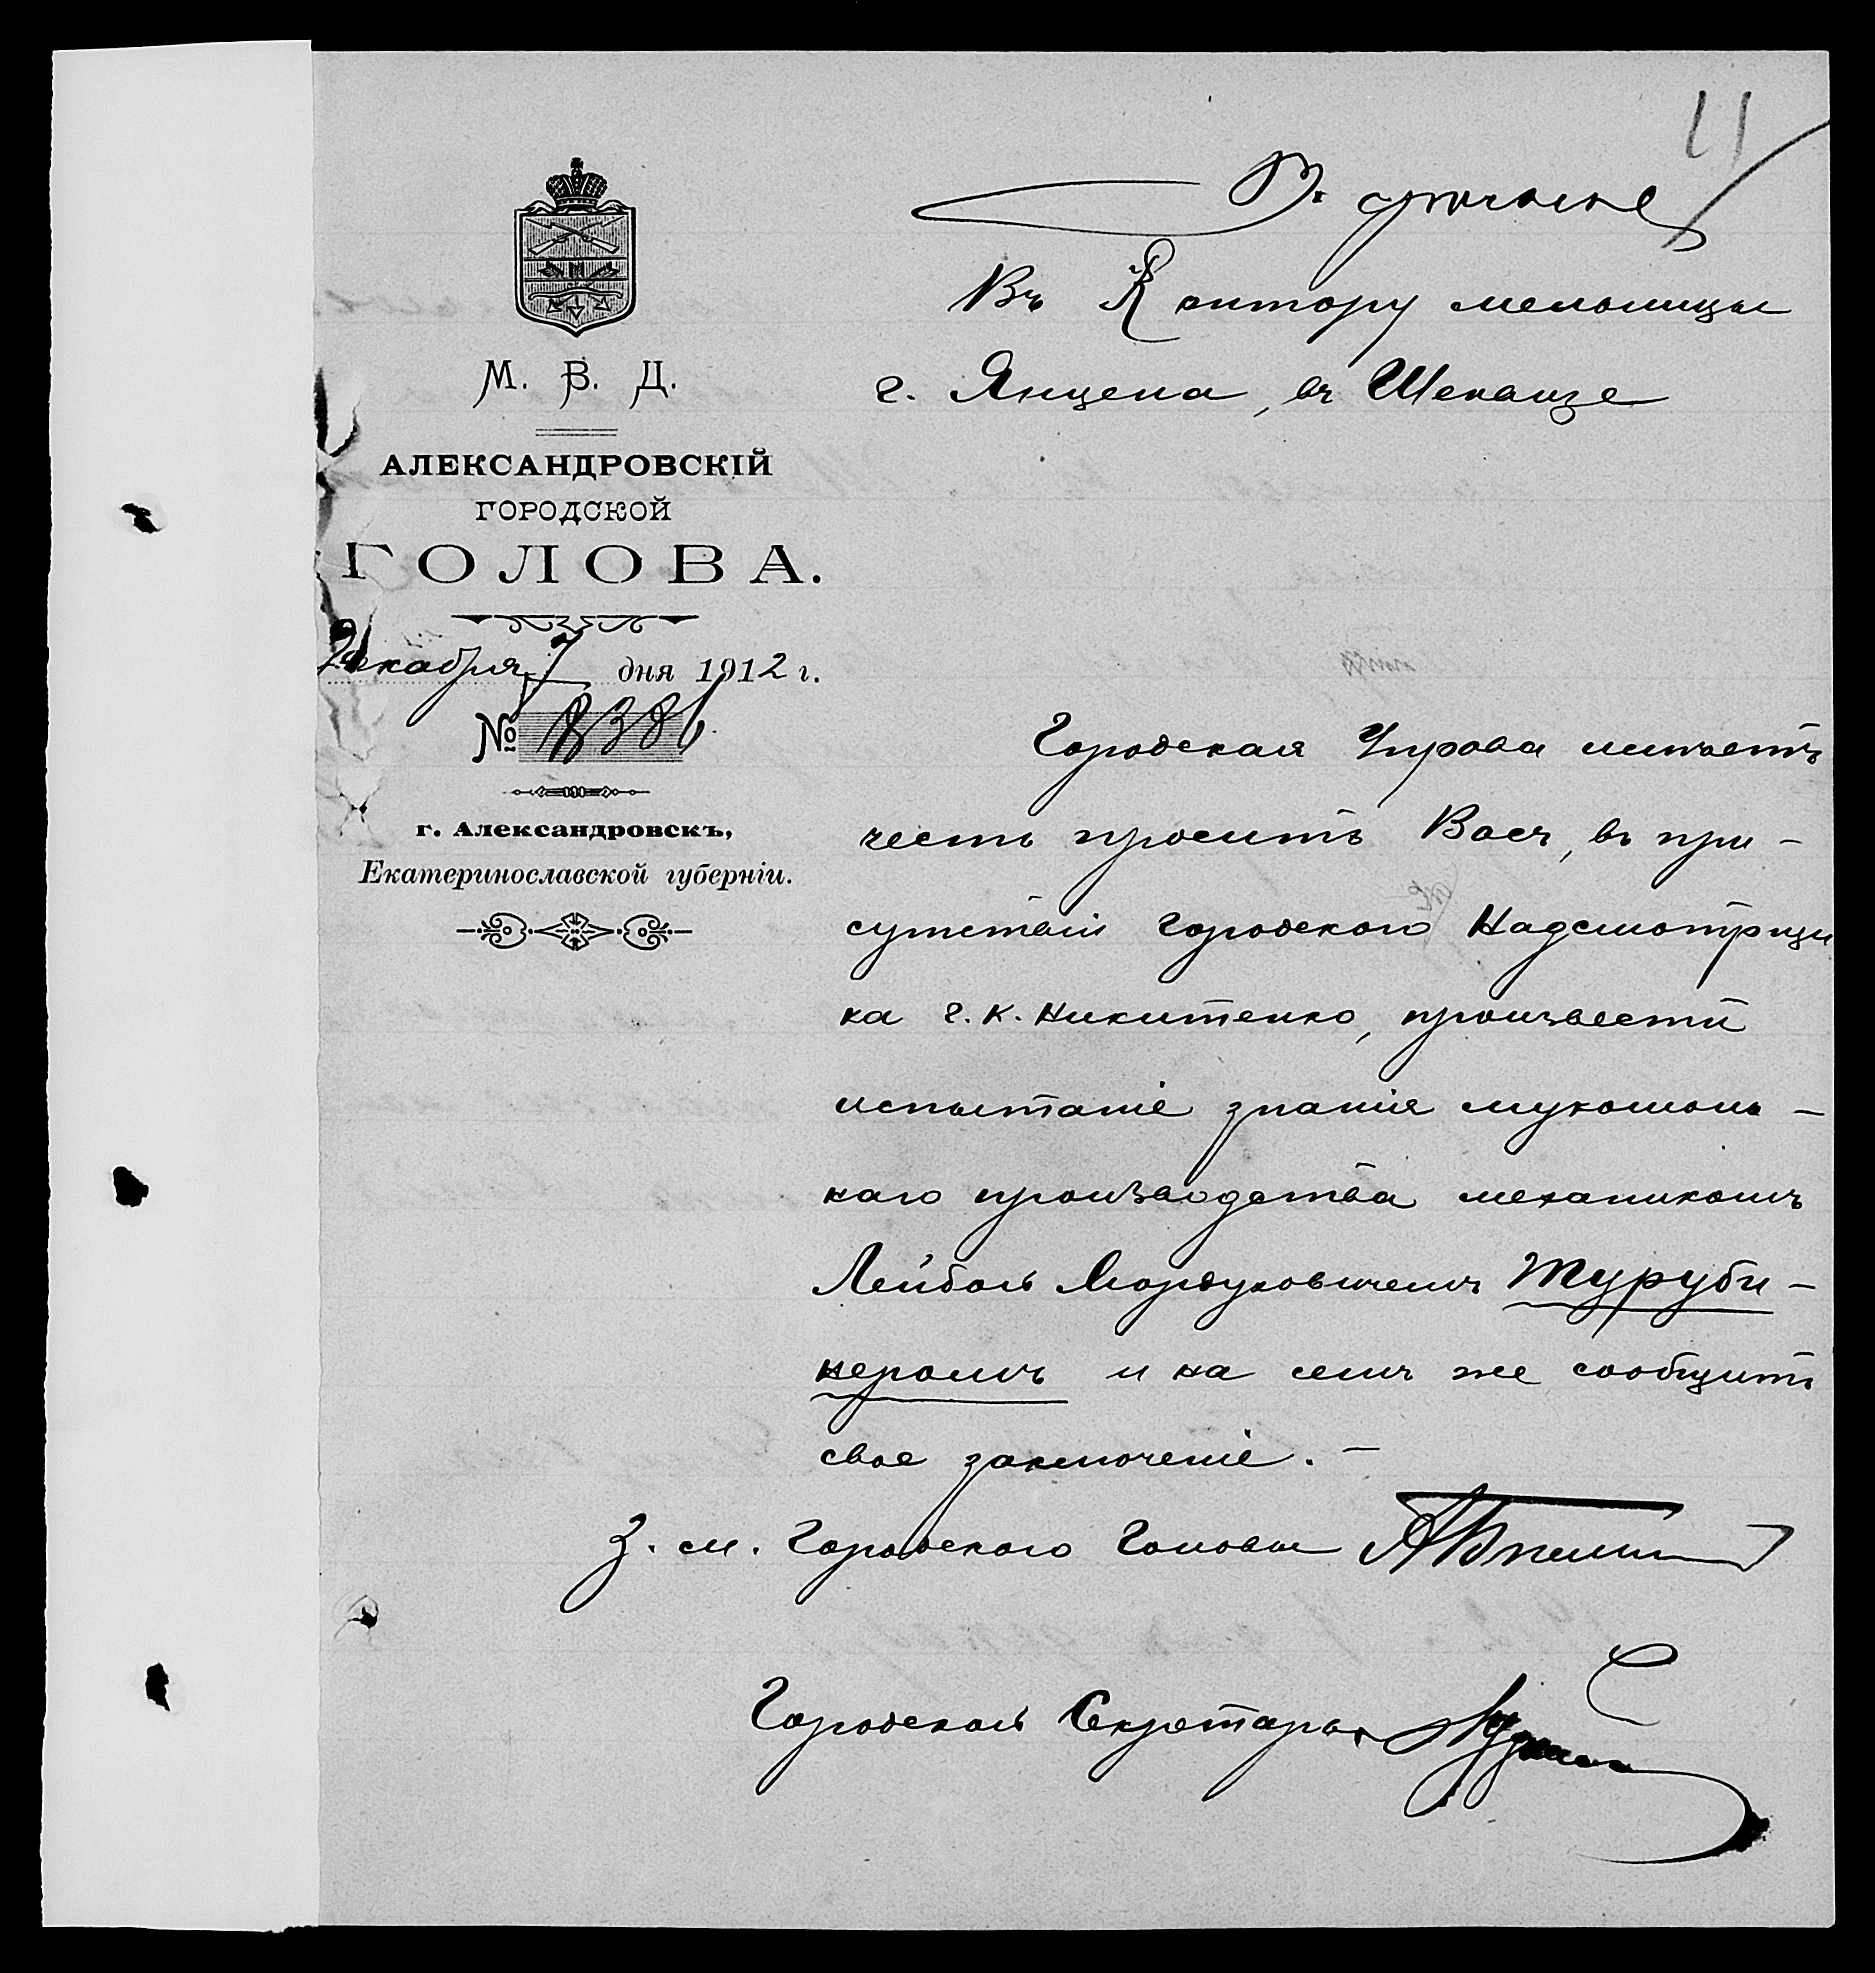 11
В. срочное
М. В. Д.
АЛЕКСАНДРОВСКІЙ
ГОРОДСКОЙ
ГОЛОВА.
Декабря 7 дня 1912 г.
№ 8386
г. Александровскъ,
Екатеринославской губерніи.
Въ Контору мельницы
г. Янцена, въ
Городская Управа имѣетъ
честь просить Васъ, въ при-
сутствіи Городского Надсмотрщи
ка г. К. Никитенко, произвести
испытаніе знанія мукомоль-
наго производства механикомъ
Лейбой Мордуховичемъ Туруби-
неромъ и на семъ же сообщить
свое заключеніе. —
З. м. Городского Головы
Городской Секретарь